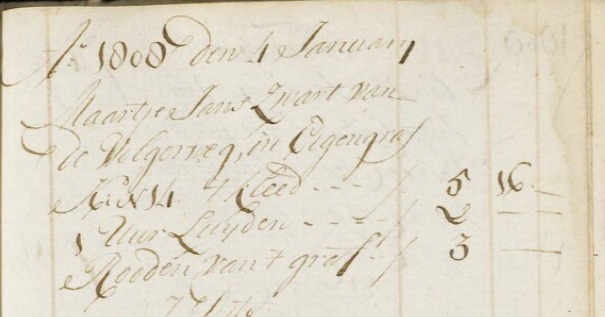 Ao 1808 den 4 January
Maartje Jans Zwart van
de Volgerweg, in Eigen graf
No 14 't kleed - - - / 5 16 -
1 Uur Luyden - - - - / 2 - -
Rooden van 't graf / 3 -